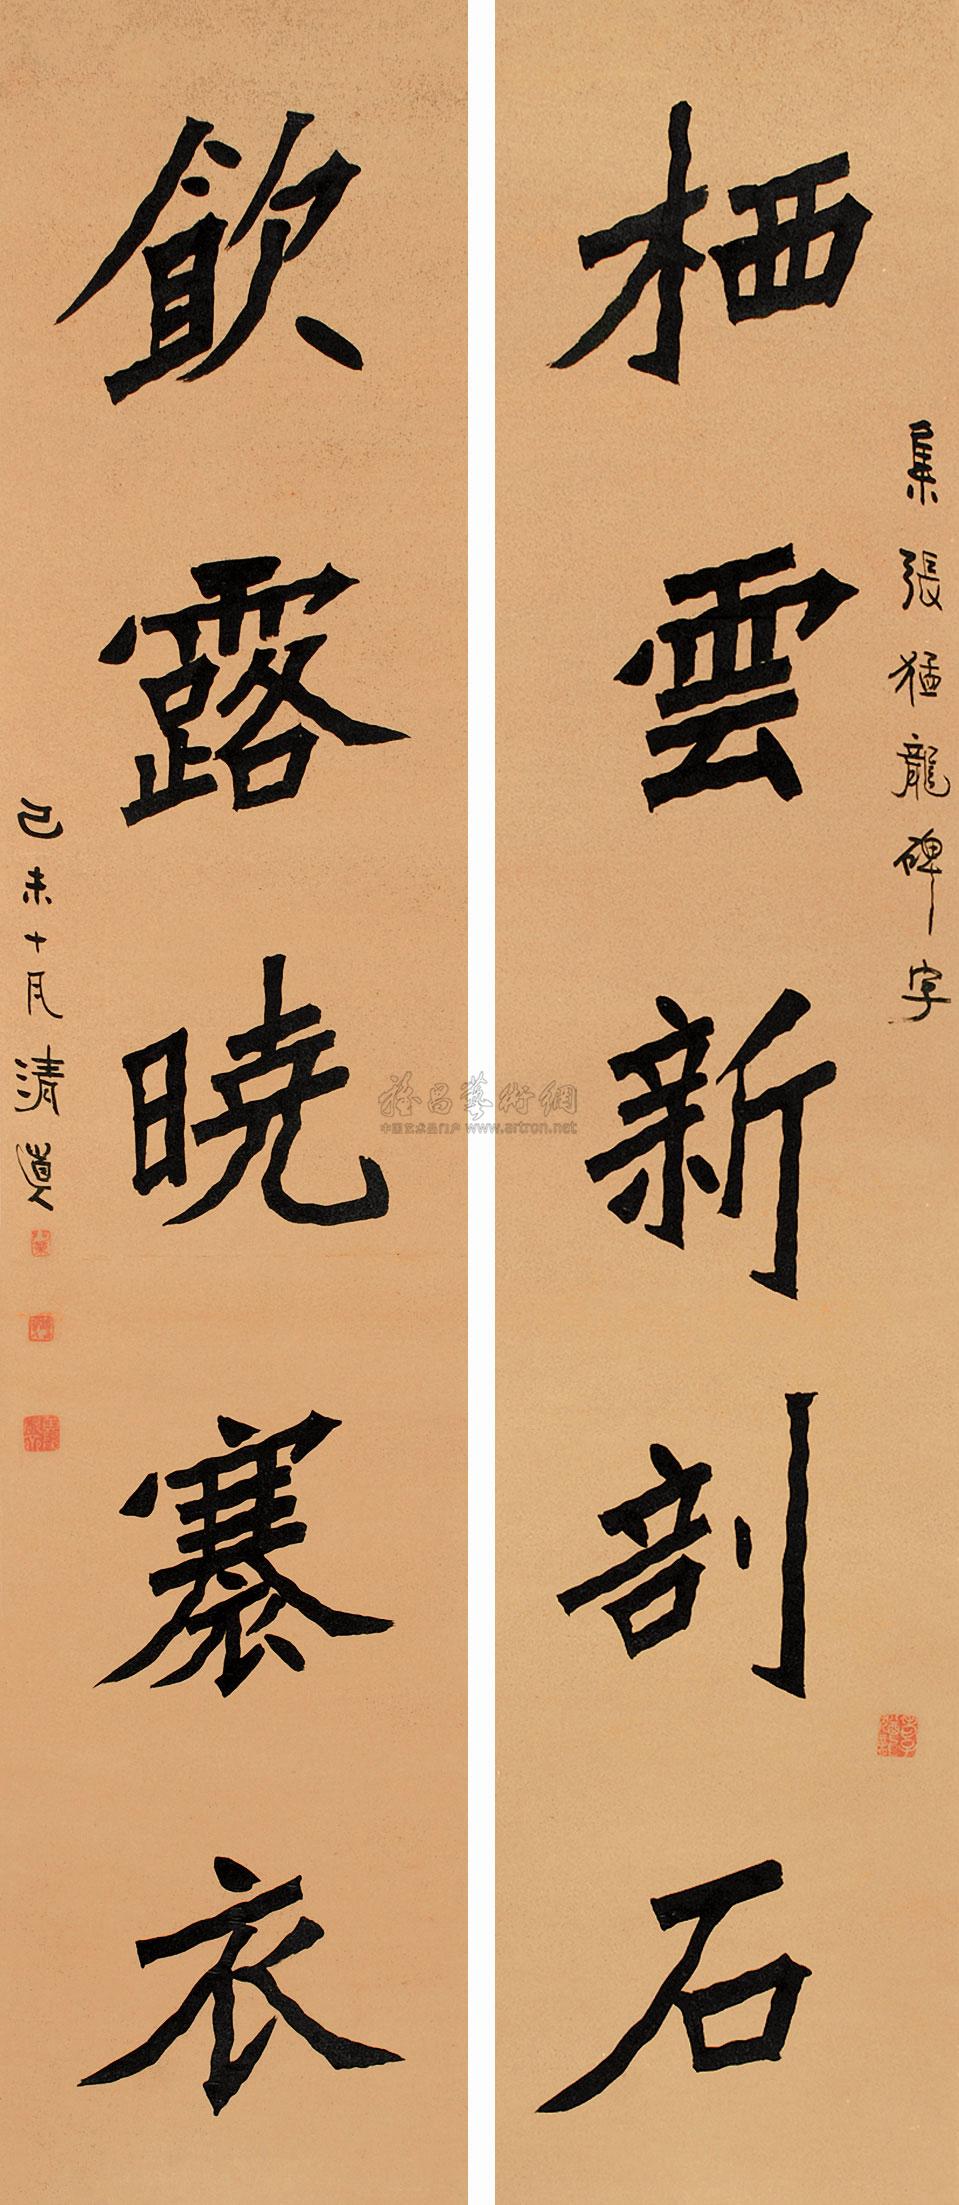 集張猛龍碑字
栖雲新剖石
飲露曉褰衣
己未十月清道人
雅昌藝術網
中国艺术品门户 www.artron.net